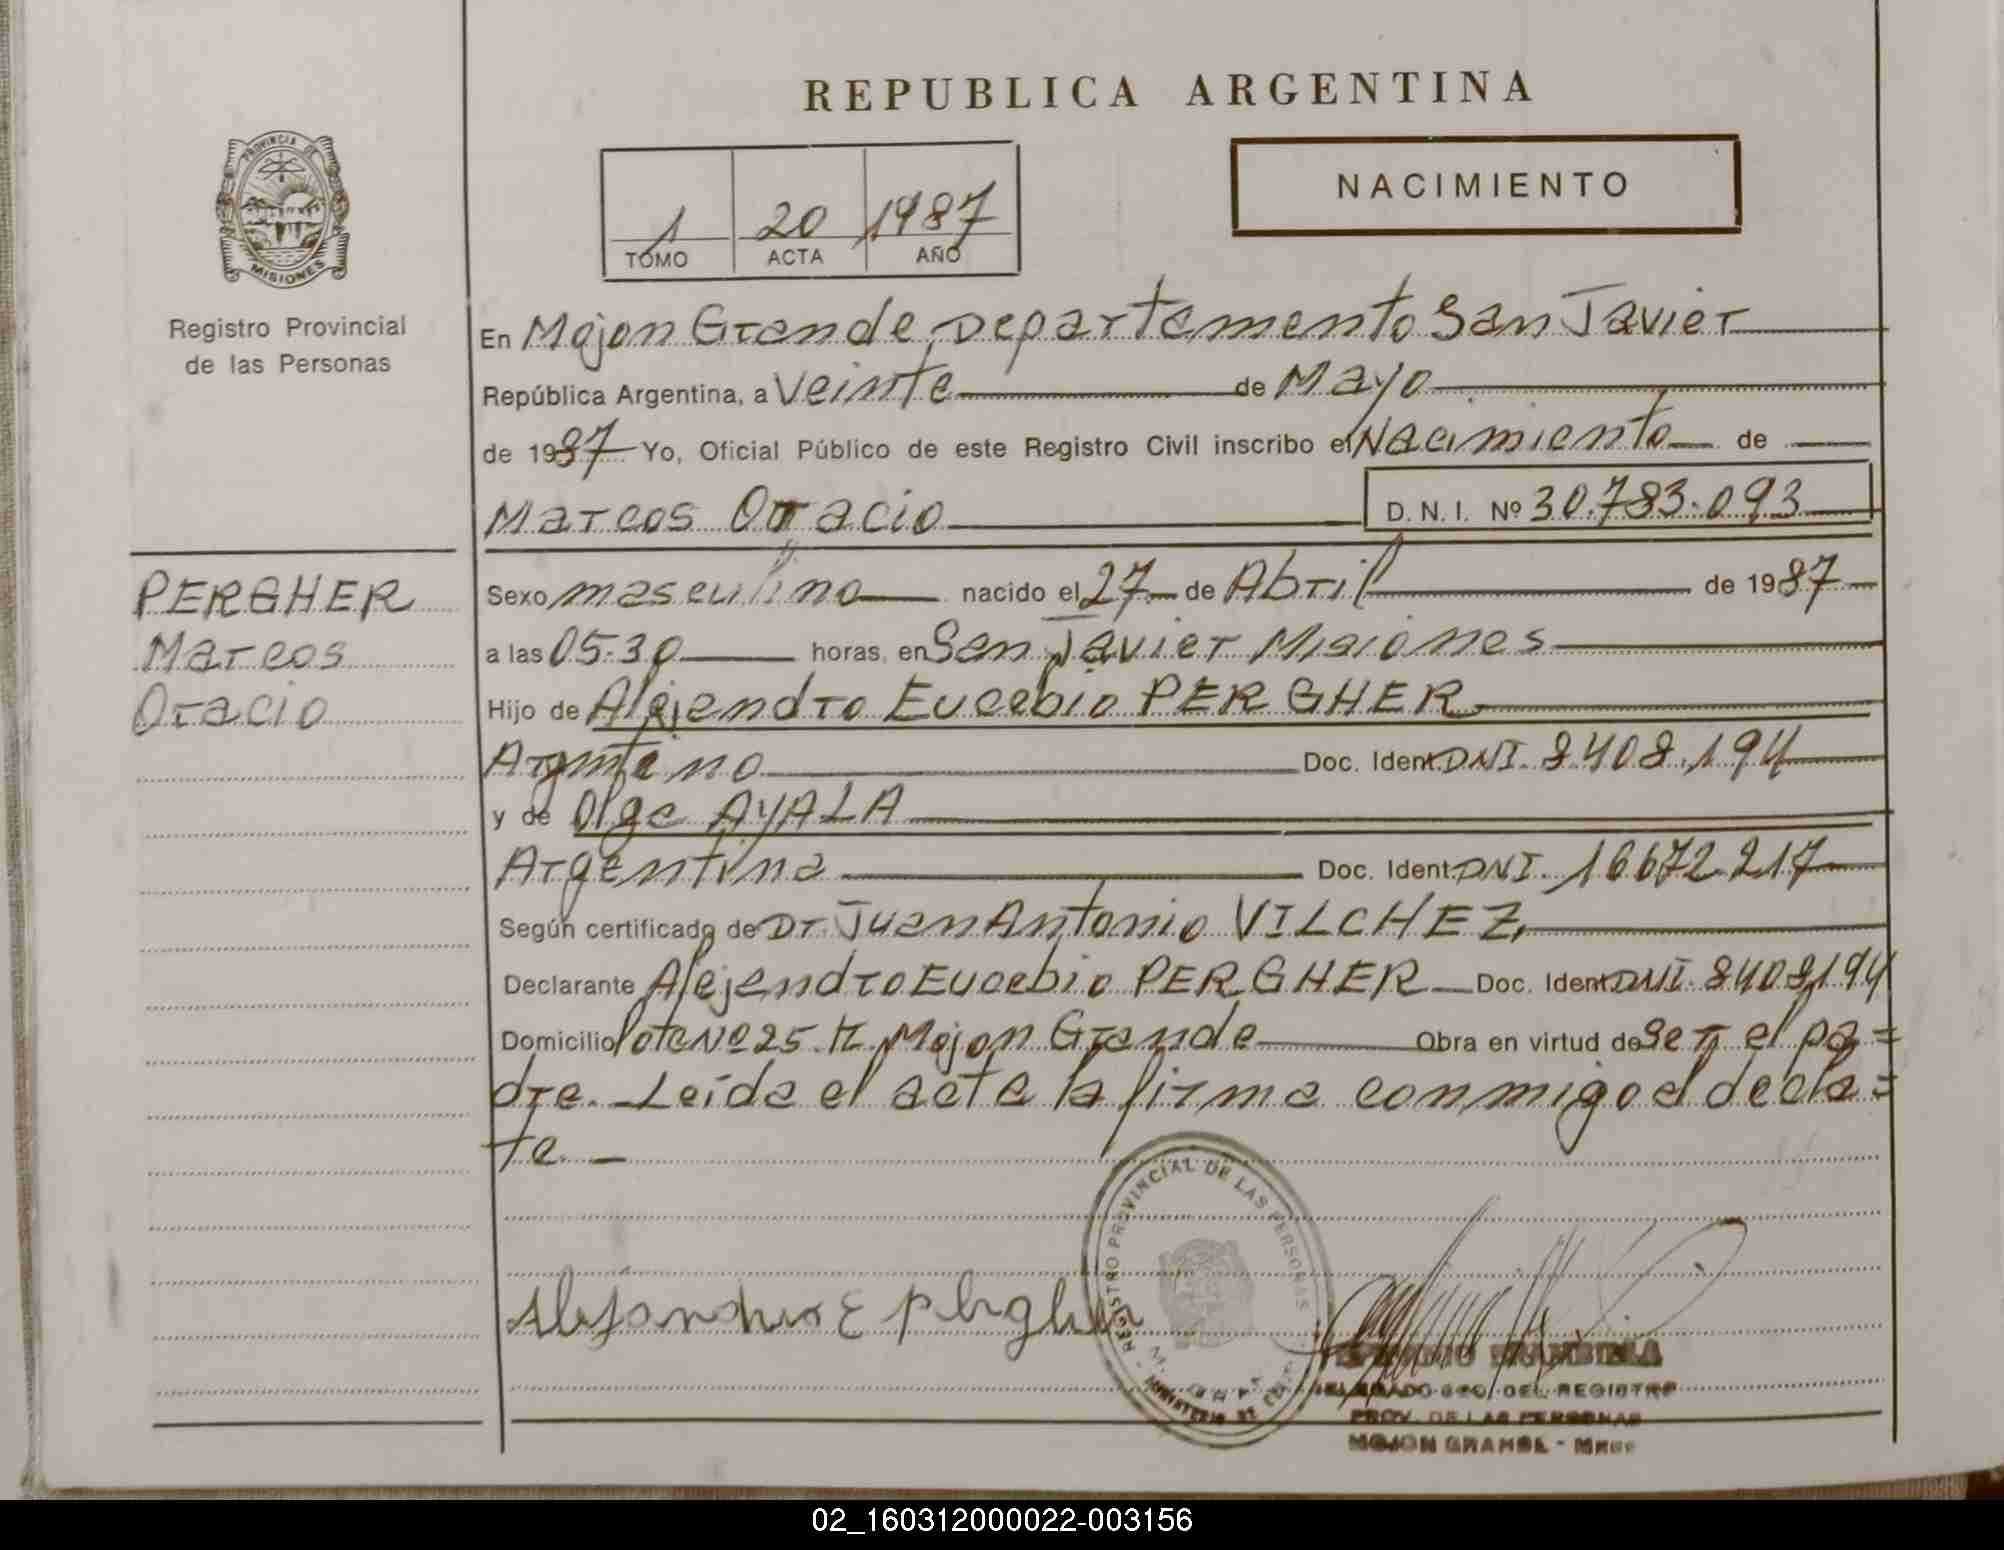 REPUBLICA ARGENTINA
PROVINCIA DE
MISIONES
Registro Provincial
de las Personas
1 20 1987
TOMO ACTA AÑO
NACIMIENTO
En Mojon Grande, Departamento San Javier
República Argentina, a Veinte de Mayo
de 1987 Yo, Oficial Público de este Registro Civil inscribo el Nacimiento de
Marcos Oracio D. N. I. Nº 30.783.093
PERGHER
Marcos
Oracio
Sexo masculino nacido el 27 de Abril de 1987
a las 05-30 horas, en San Javier Misiones
Hijo de Alejandro Eucebio PERGHER
Argntino Doc. Ident. DNI. 8408.194
y de Olga AYALA
Argentina Doc. Ident. DNI. 16672.217
Según certificado de Dr. Juan Antonio VILCHEZ,
Declarante Alejandro Eucebio PERGHER Doc. Ident. DNI. 8408194
Domicilio lote Nº 25. Mojon Grande Obra en virtud de ser el pa=
dre. Leída el acta la firma conmigo el decla=
te.
Alejandro E Pergher
REGISTRO PROVINCIAL DE LAS PERSONAS
MINISTERIO DE
DELEGADO DEL REGISTRO
PROV. DE LAS PERSONAS
MOJON GRANDE - Mnes
02_160312000022-003156